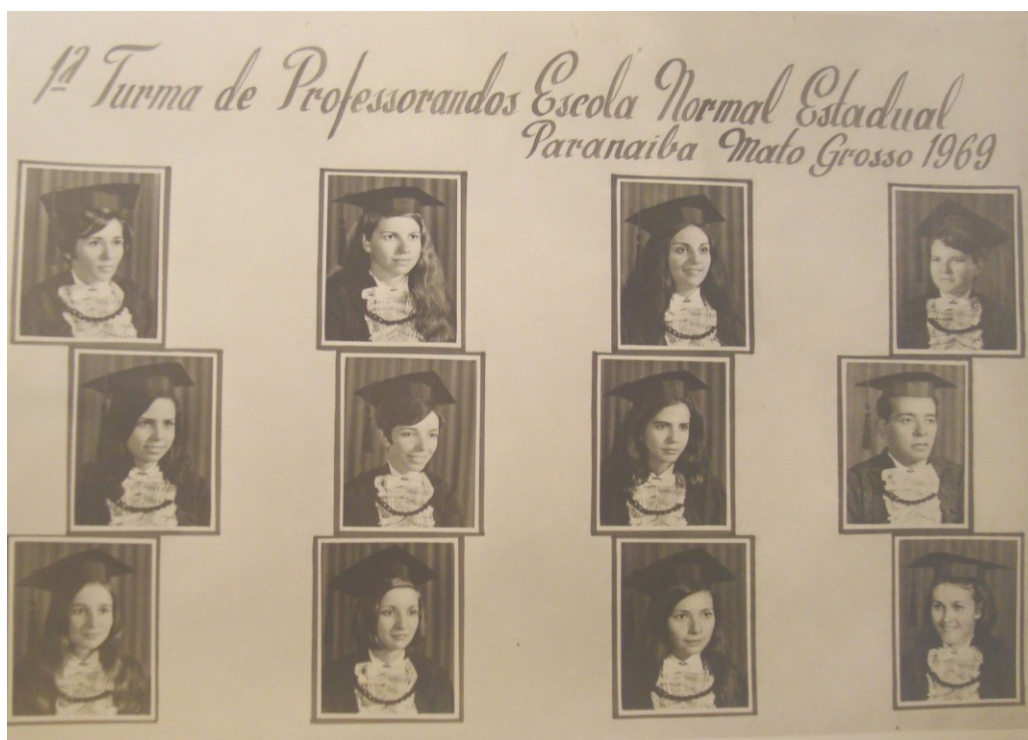 1ª Turma de Professorandos Escola Normal Estadual
Paranaíba Mato Grosso 1969